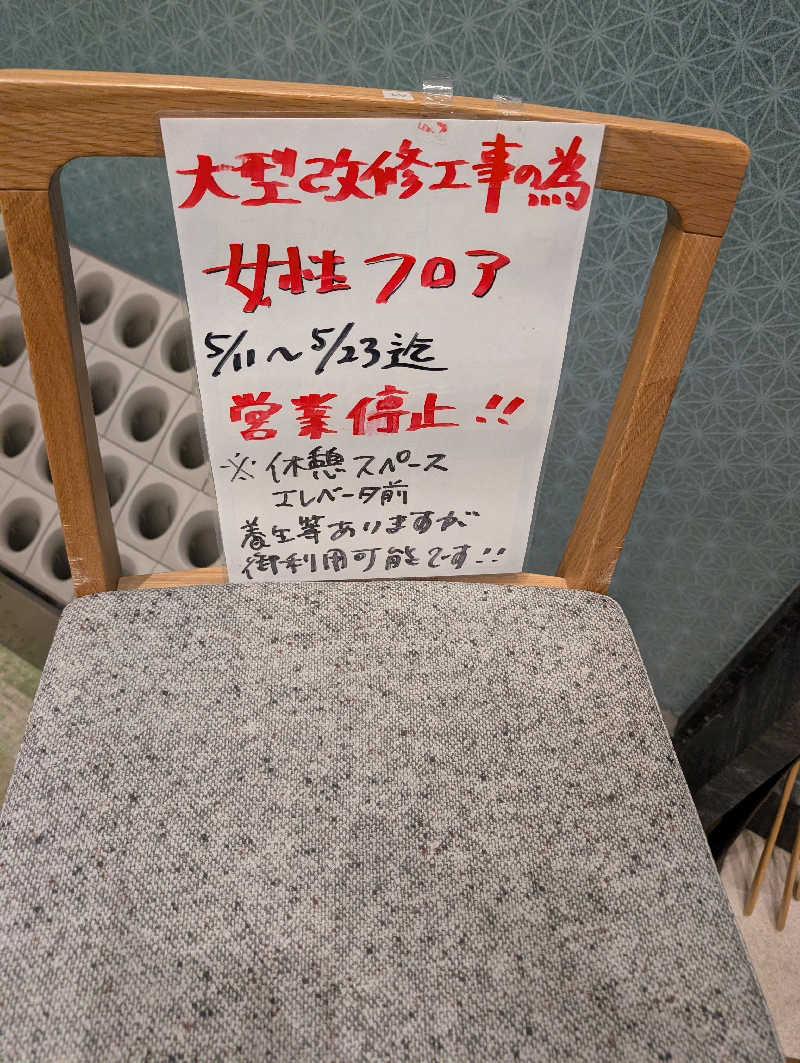 大型改修工事の為
女性フロア
5/11～5/23迄
営業停止!!
※休憩スペース
エレベータ前
養生等ありますが
御利用可能です!!